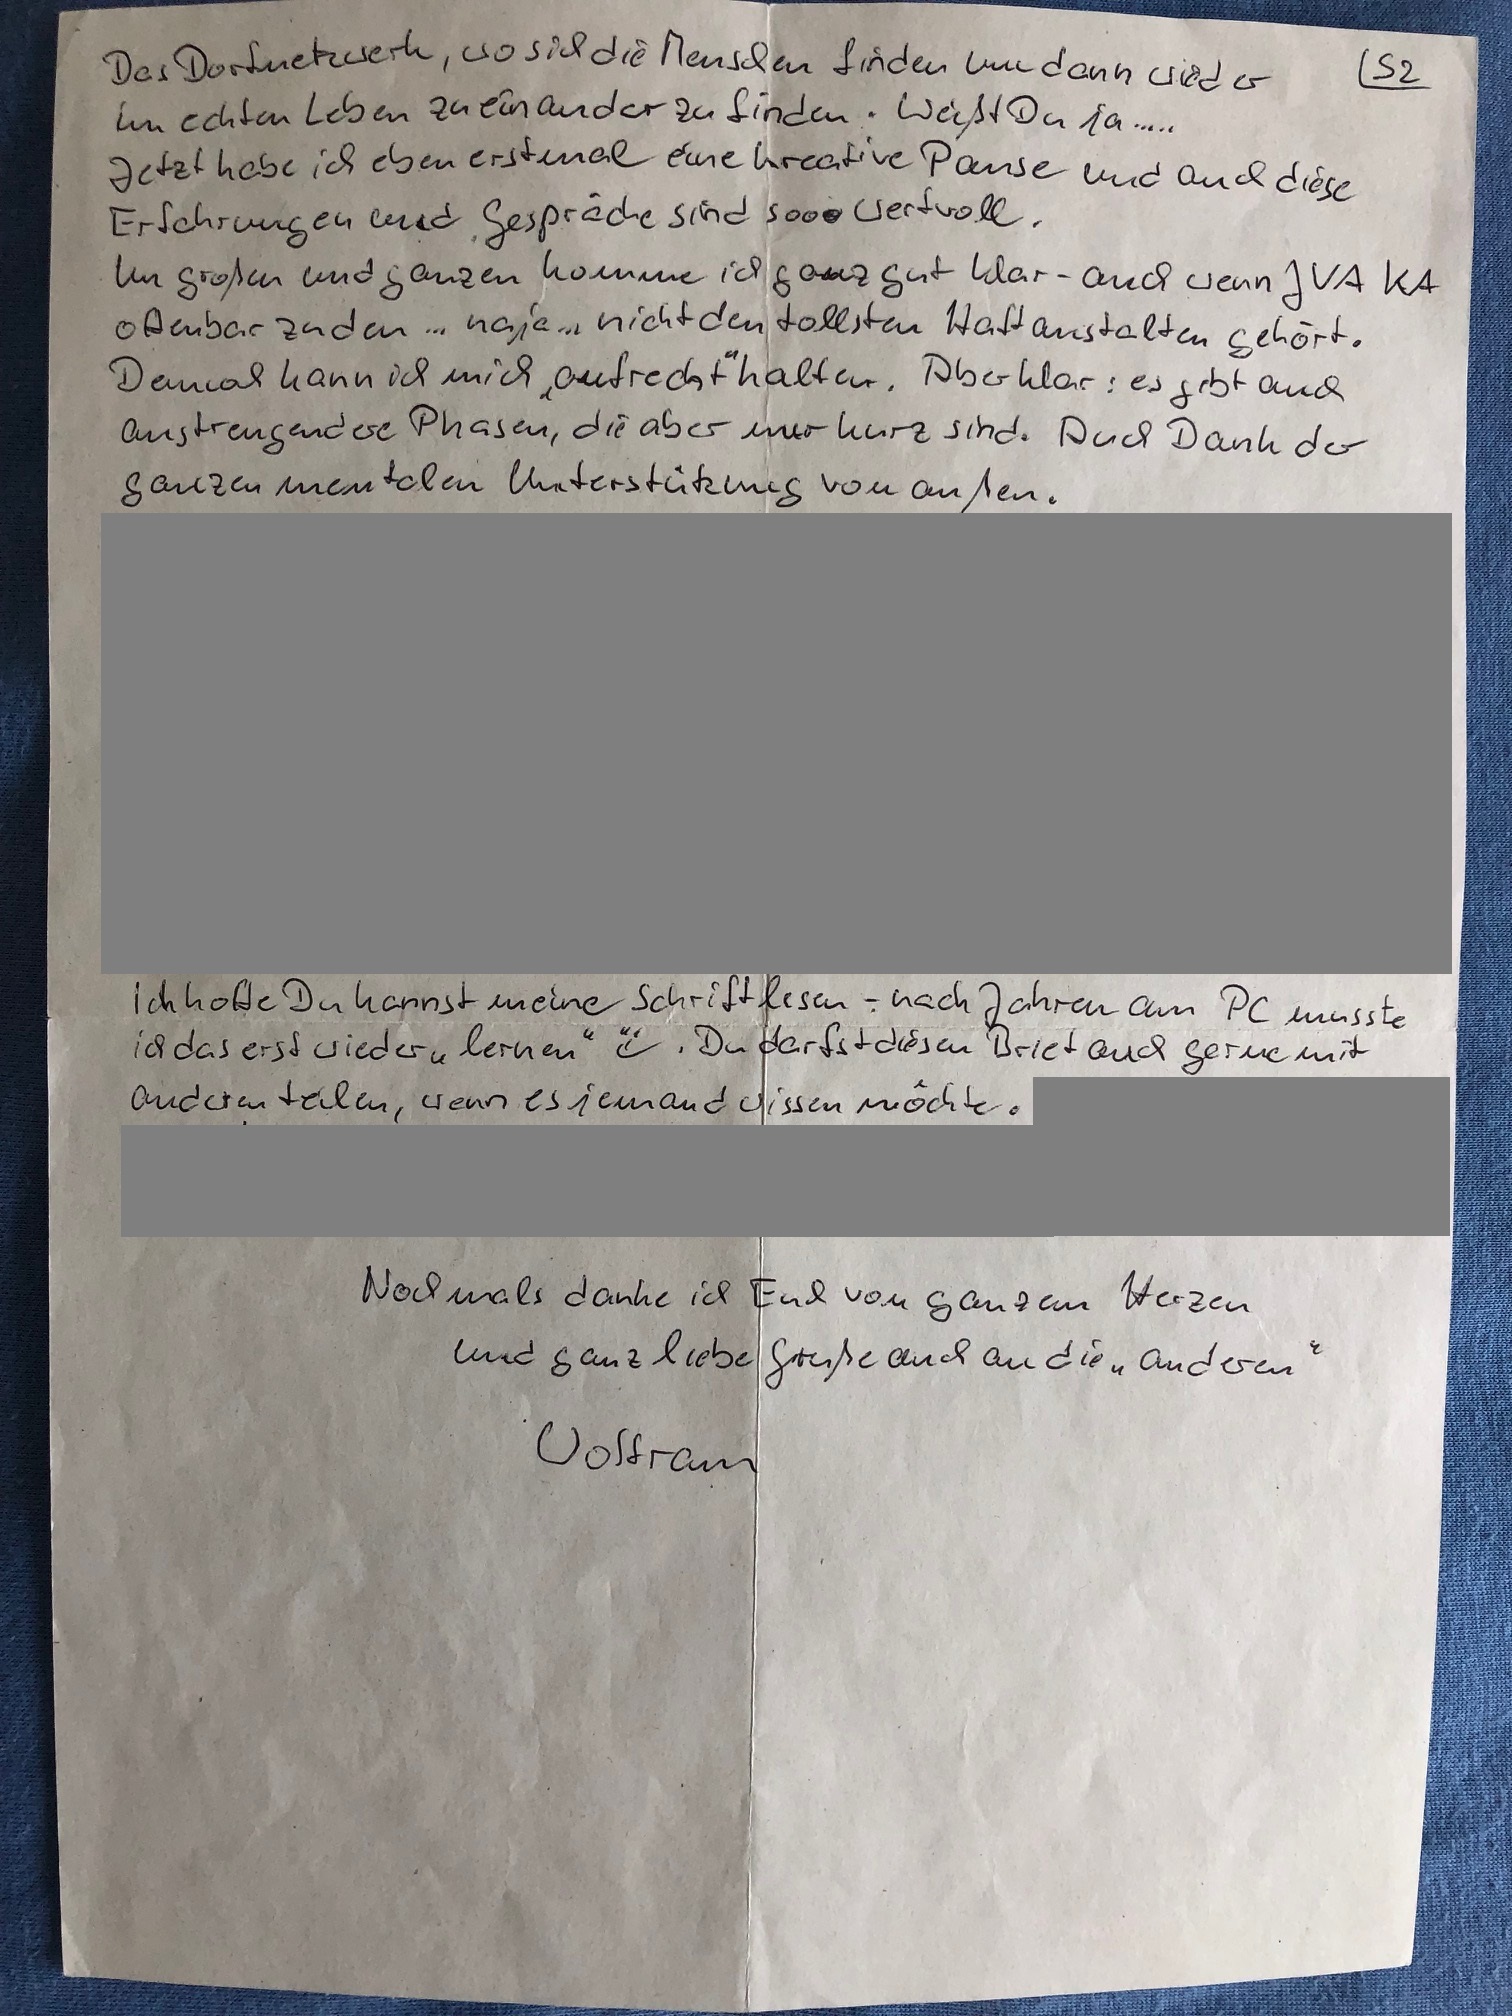 Das Dorfnetzwerk, wo sich die Menschen finden um dann wieder
S2
im echten Leben zueinander zu finden. Weißt Du ja.....
Jetzt habe ich eben erstmal eine kreative Pause und auch diese
Erfahrungen und Gespräche sind sooo wertvoll.
Im großen und ganzen komme ich ganz gut klar - auch wenn JVA KA
offenbar zu den ... naja... nicht den tollsten Haftanstalten gehört.
Demal kann ich mich „aufrecht" halten. Aber klar: es gibt auch
anstrengendere Phasen, die aber nur kurz sind. Auch Dank der
ganzen mentalen Unterstützung von außen.
Ich hoffe Du kannst meine Schrift lesen - nach Jahren am PC musste
ich das erst wieder „lernen" ☺. Du darfst diesen Brief auch gerne mit
anderen teilen, wenn es jemand wissen möchte.
Nochmals danke ich Euch von ganzem Herzen
und ganz liebe Grüße auch an die „anderen"
Wolfram